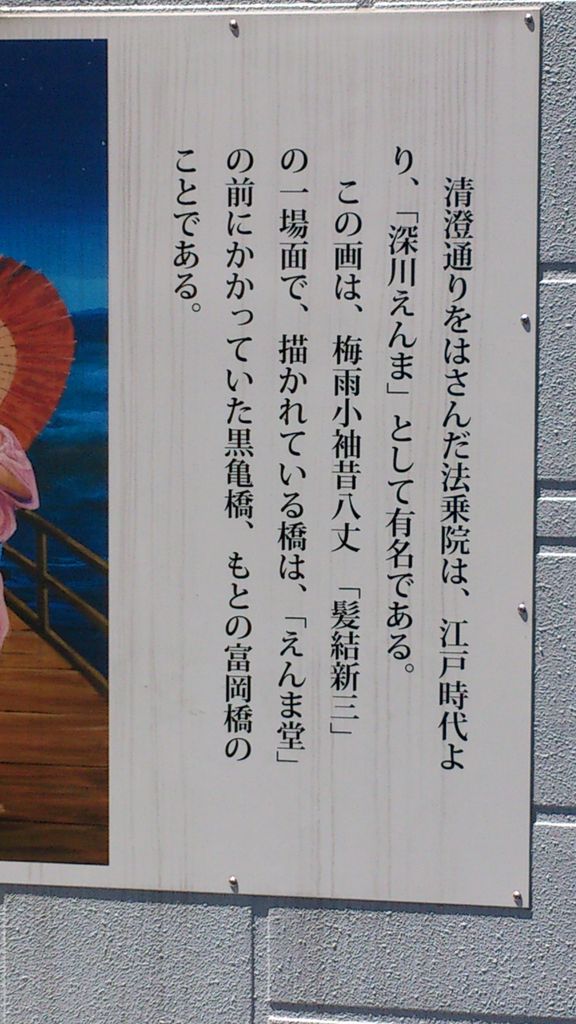 清澄通りをはさんだ法乗院は、江戸時代よ
り、「深川えんま」として有名である。
この画は、梅雨小袖昔八丈　「髪結新三」
の一場面で、描かれている橋は、「えんま堂」
の前にかかっていた黒亀橋、もとの富岡橋の
ことである。